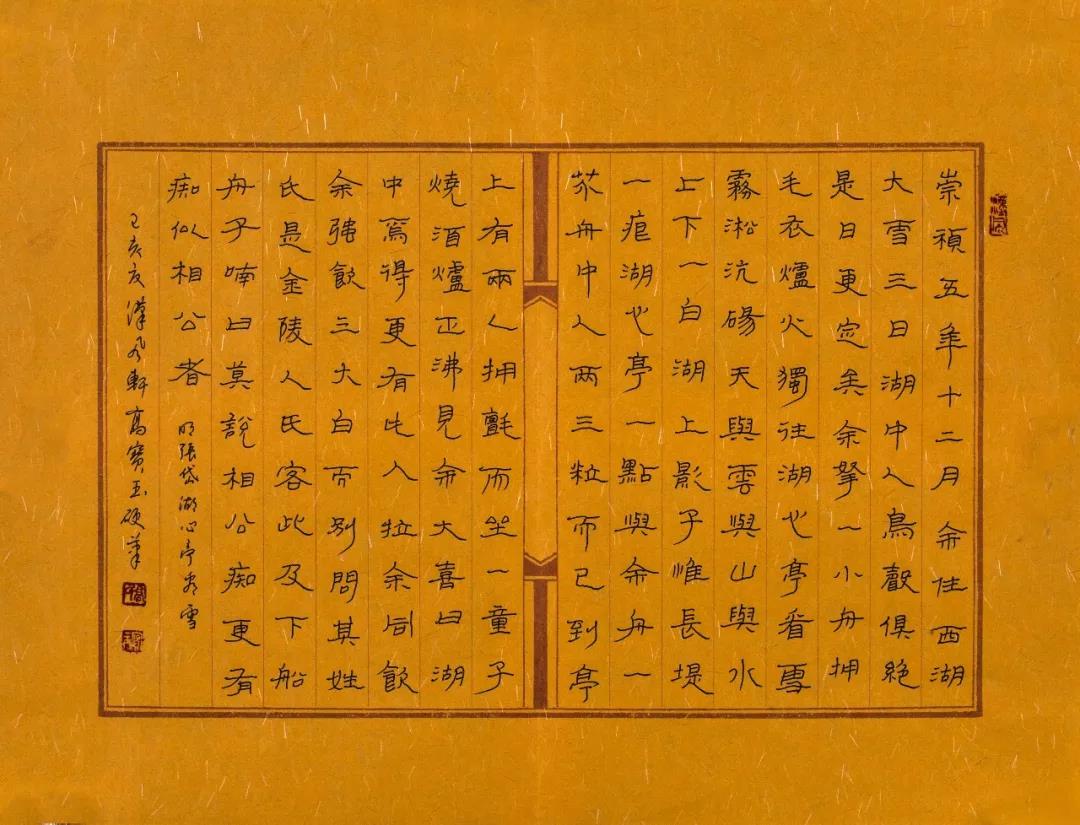 崇禎五年十二月余住西湖
大雪三日湖中人鳥聲俱絕
是日更定矣余拏一小舟拥
毛衣爐火獨往湖心亭看雪
霧淞沆碭天與雲與山與水
上下一白湖上影子惟長堤
一痕湖心亭一點與余舟一
芥舟中人两三粒而已到亭
上有兩人拥氈而坐一童子
燒酒爐正沸見余大喜曰湖
中焉得更有此人拉余同飲
余强飲三大白而别問其姓
氏是金陵人氏客此及下船
舟子喃曰莫說相公痴更有
痴似相公者
明張岱湖心亭看雪
己亥夏漢風軒高寶玉硬筆